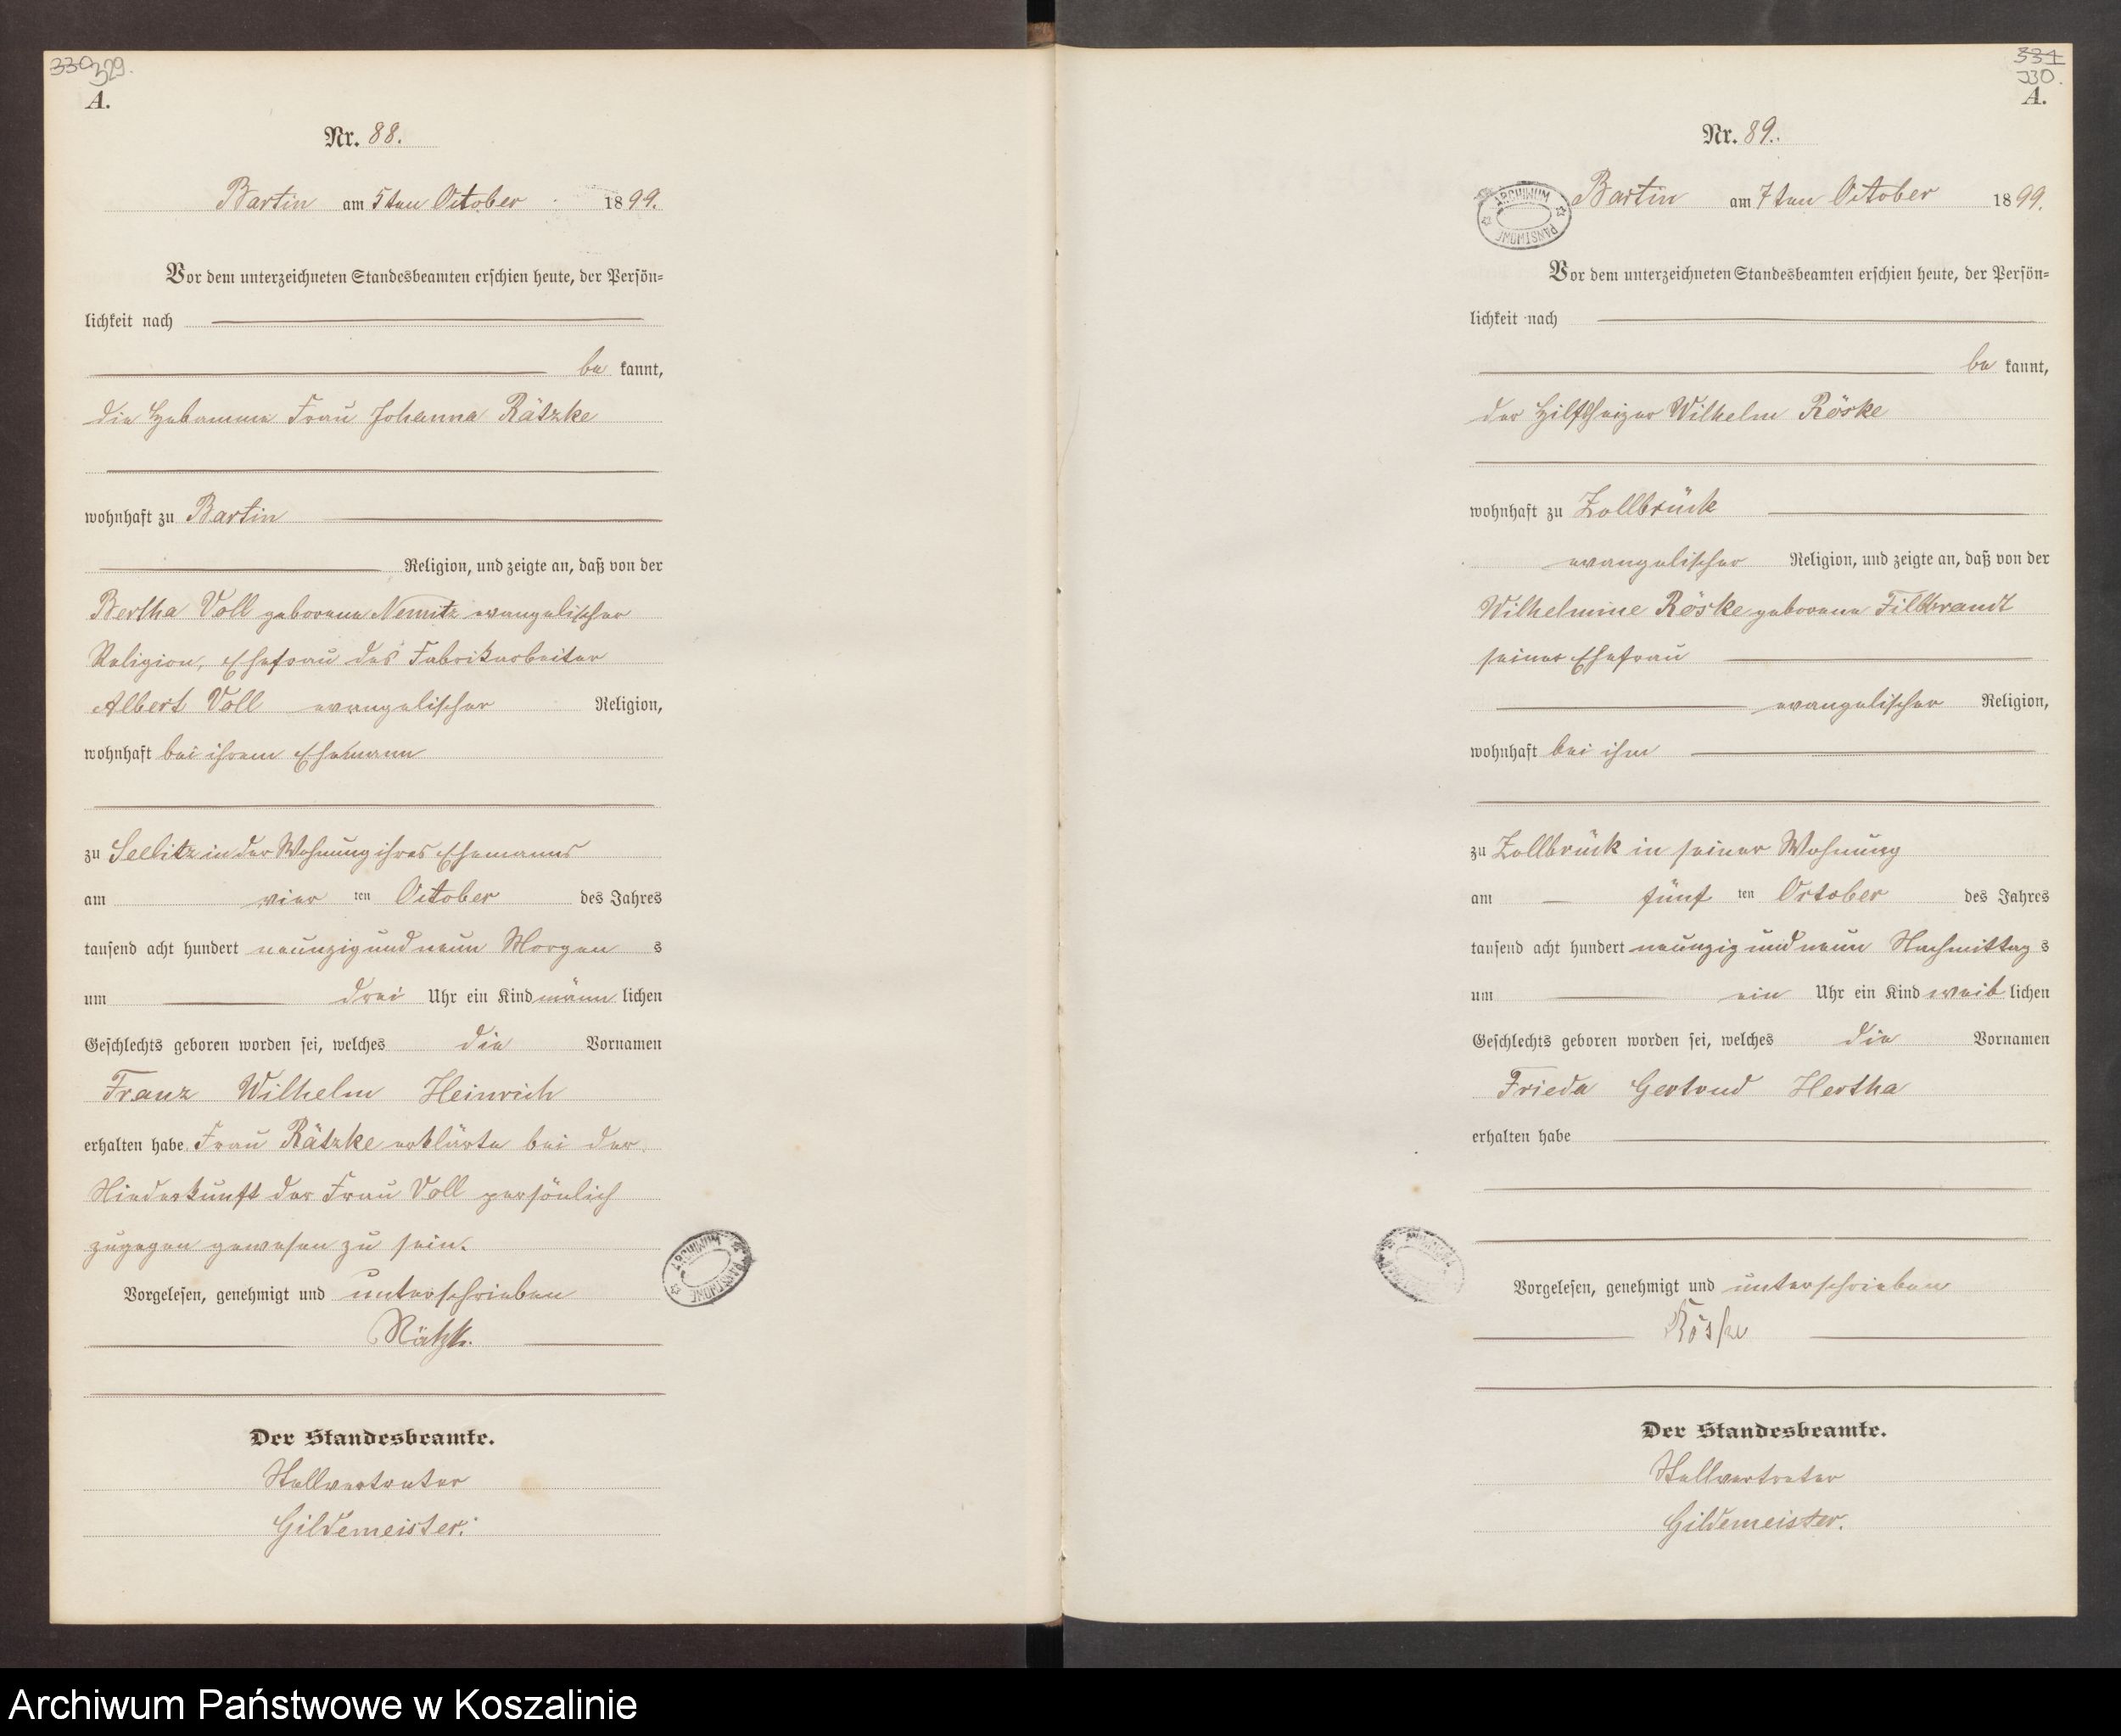 330 329.
A.
Nr. 88.
Bartin am 5ten October 1899.
Vor dem unterzeichneten Standesbeamten erschien heute, der Persön=
lichkeit nach
be kannt,
die Hebamme Frau Johanna Rätzke
wohnhaft zu Bartin
Religion, und zeigte an, daß von der
Bertha Voll geborene Nemitz evangelischer
Religion, Ehefrau des Fabrikarbeiter
Albert Voll evangelischer Religion,
wohnhaft bei ihrem Ehemann
zu Seelitz in der Wohnung ihres Ehemanns
am vier ten October des Jahres
tausend acht hundert neunzig und neun Morgen s
um drei Uhr ein Kind männ lichen
Geschlechts geboren worden sei, welches die Vornamen
Franz Wilhelm Heinrich
erhalten habe. Frau Rätzke erklärte bei der
Niederkunft der Frau Voll persönlich
zugegen gewesen zu sein.
Vorgelesen, genehmigt und unterschrieben
Rätzk.
Der Standesbeamte.
Stellvertreter
Gildemeister.
ARCHIWUM PAŃSTWOWE
331
330.
A.
Nr. 89.
ARCHIWUM PAŃSTWOWE
Bartin am 7ten October 1899.
Vor dem unterzeichneten Standesbeamten erschien heute, der Persön=
lichkeit nach
be kannt,
der Hilfsheizer Wilhelm Röske
wohnhaft zu Zollbrück
evangelischer Religion, und zeigte an, daß von der
Wilhelmine Röske geborene Fillbrandt
seiner Ehefrau
evangelischer Religion,
wohnhaft bei ihm
zu Zollbrück in seiner Wohnung
am fünf ten October des Jahres
tausend acht hundert neunzig und neun Nachmittag s
um ein Uhr ein Kind weib lichen
Geschlechts geboren worden sei, welches die Vornamen
Frieda Gertrud Hertha
erhalten habe
Vorgelesen, genehmigt und unterschrieben
Röske
Der Standesbeamte.
Stellvertreter
Gildemeister.
Archiwum Państwowe w Koszalinie